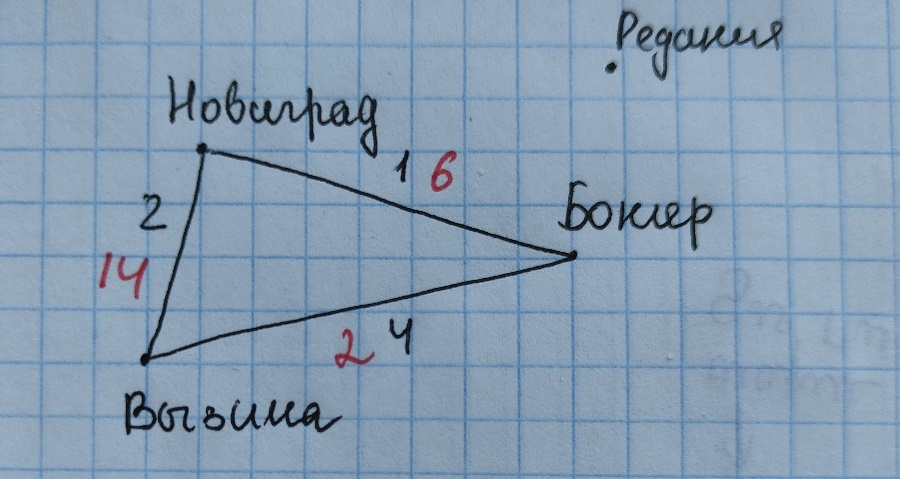 Редания
Новиград
1 6
2
Боклер
14
2 4
Вызима